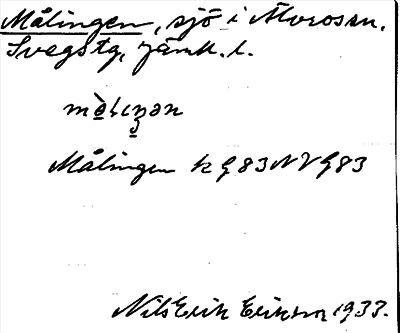 Målingen, sjö i Älvros sn.
Svegs tg, Jämtl. l.
Målingen k G83NV G83
Nils Erik Erikson 1933.